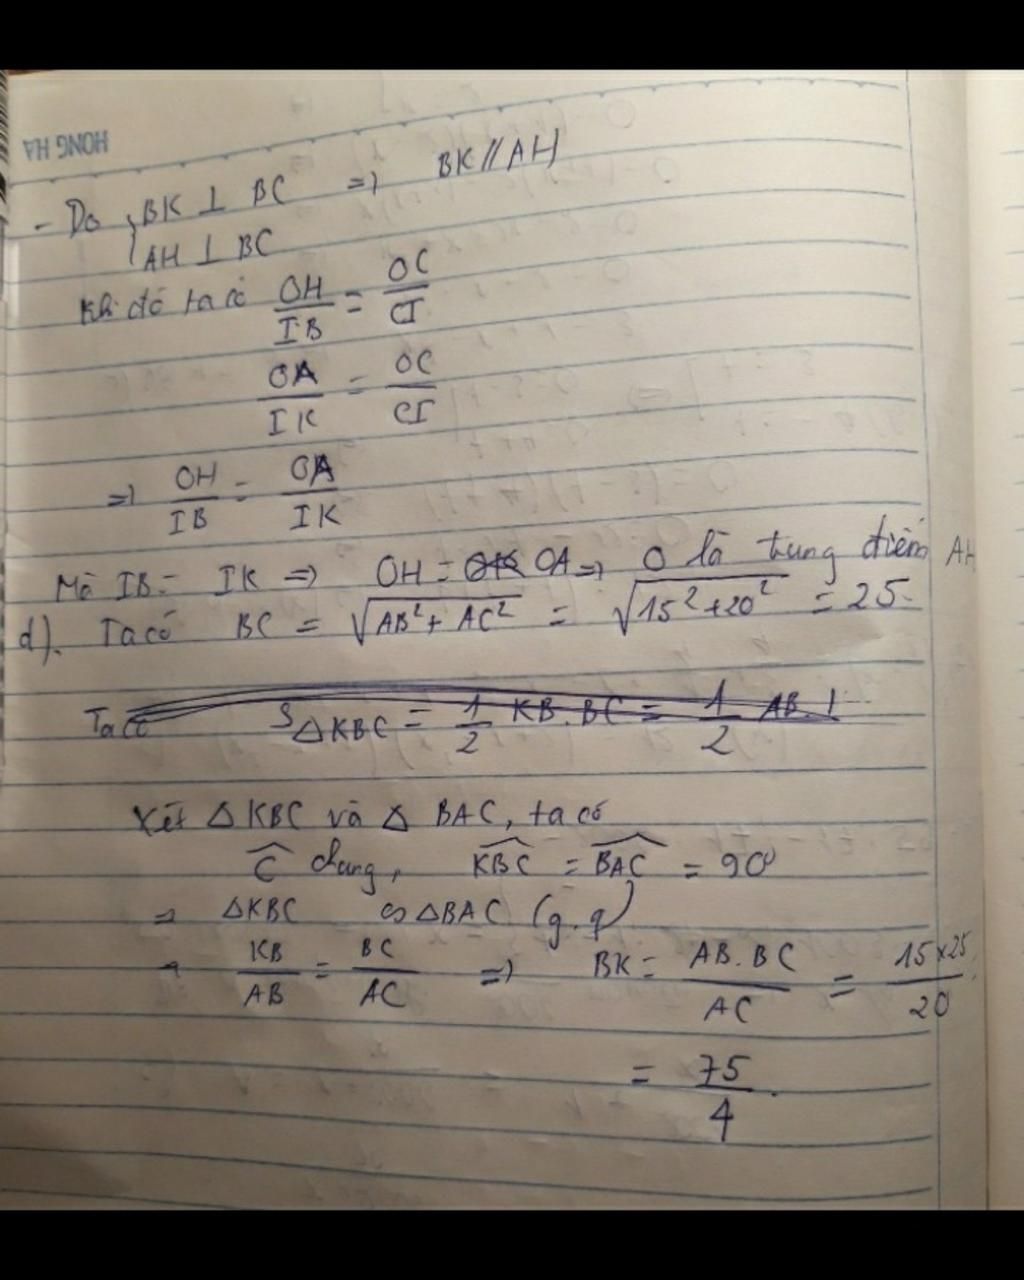 HONG HA
- Do { BK ⊥ BC => BK // AH
AH ⊥ BC
Khi đó ta có OH/IB = OC/CI
OA/IK = OC/CI
=> OH/IB = OA/IK
Mà IB = IK => OH = OK OA => O là trung điểm AH
d). Ta có BC = √(AB² + AC²) = √(15² + 20²) = 25.
Ta có S△KBC = 1/2 KB.BC = 1/2 AB.
Xét △ KBC và △ BAC, ta có
Ĉ chung, KBC = BAC = 90°
=> △KBC ∽ △BAC (g.g)
KB/AB = BC/AC => BK = AB.BC/AC = 15×25/20
= 75/4.